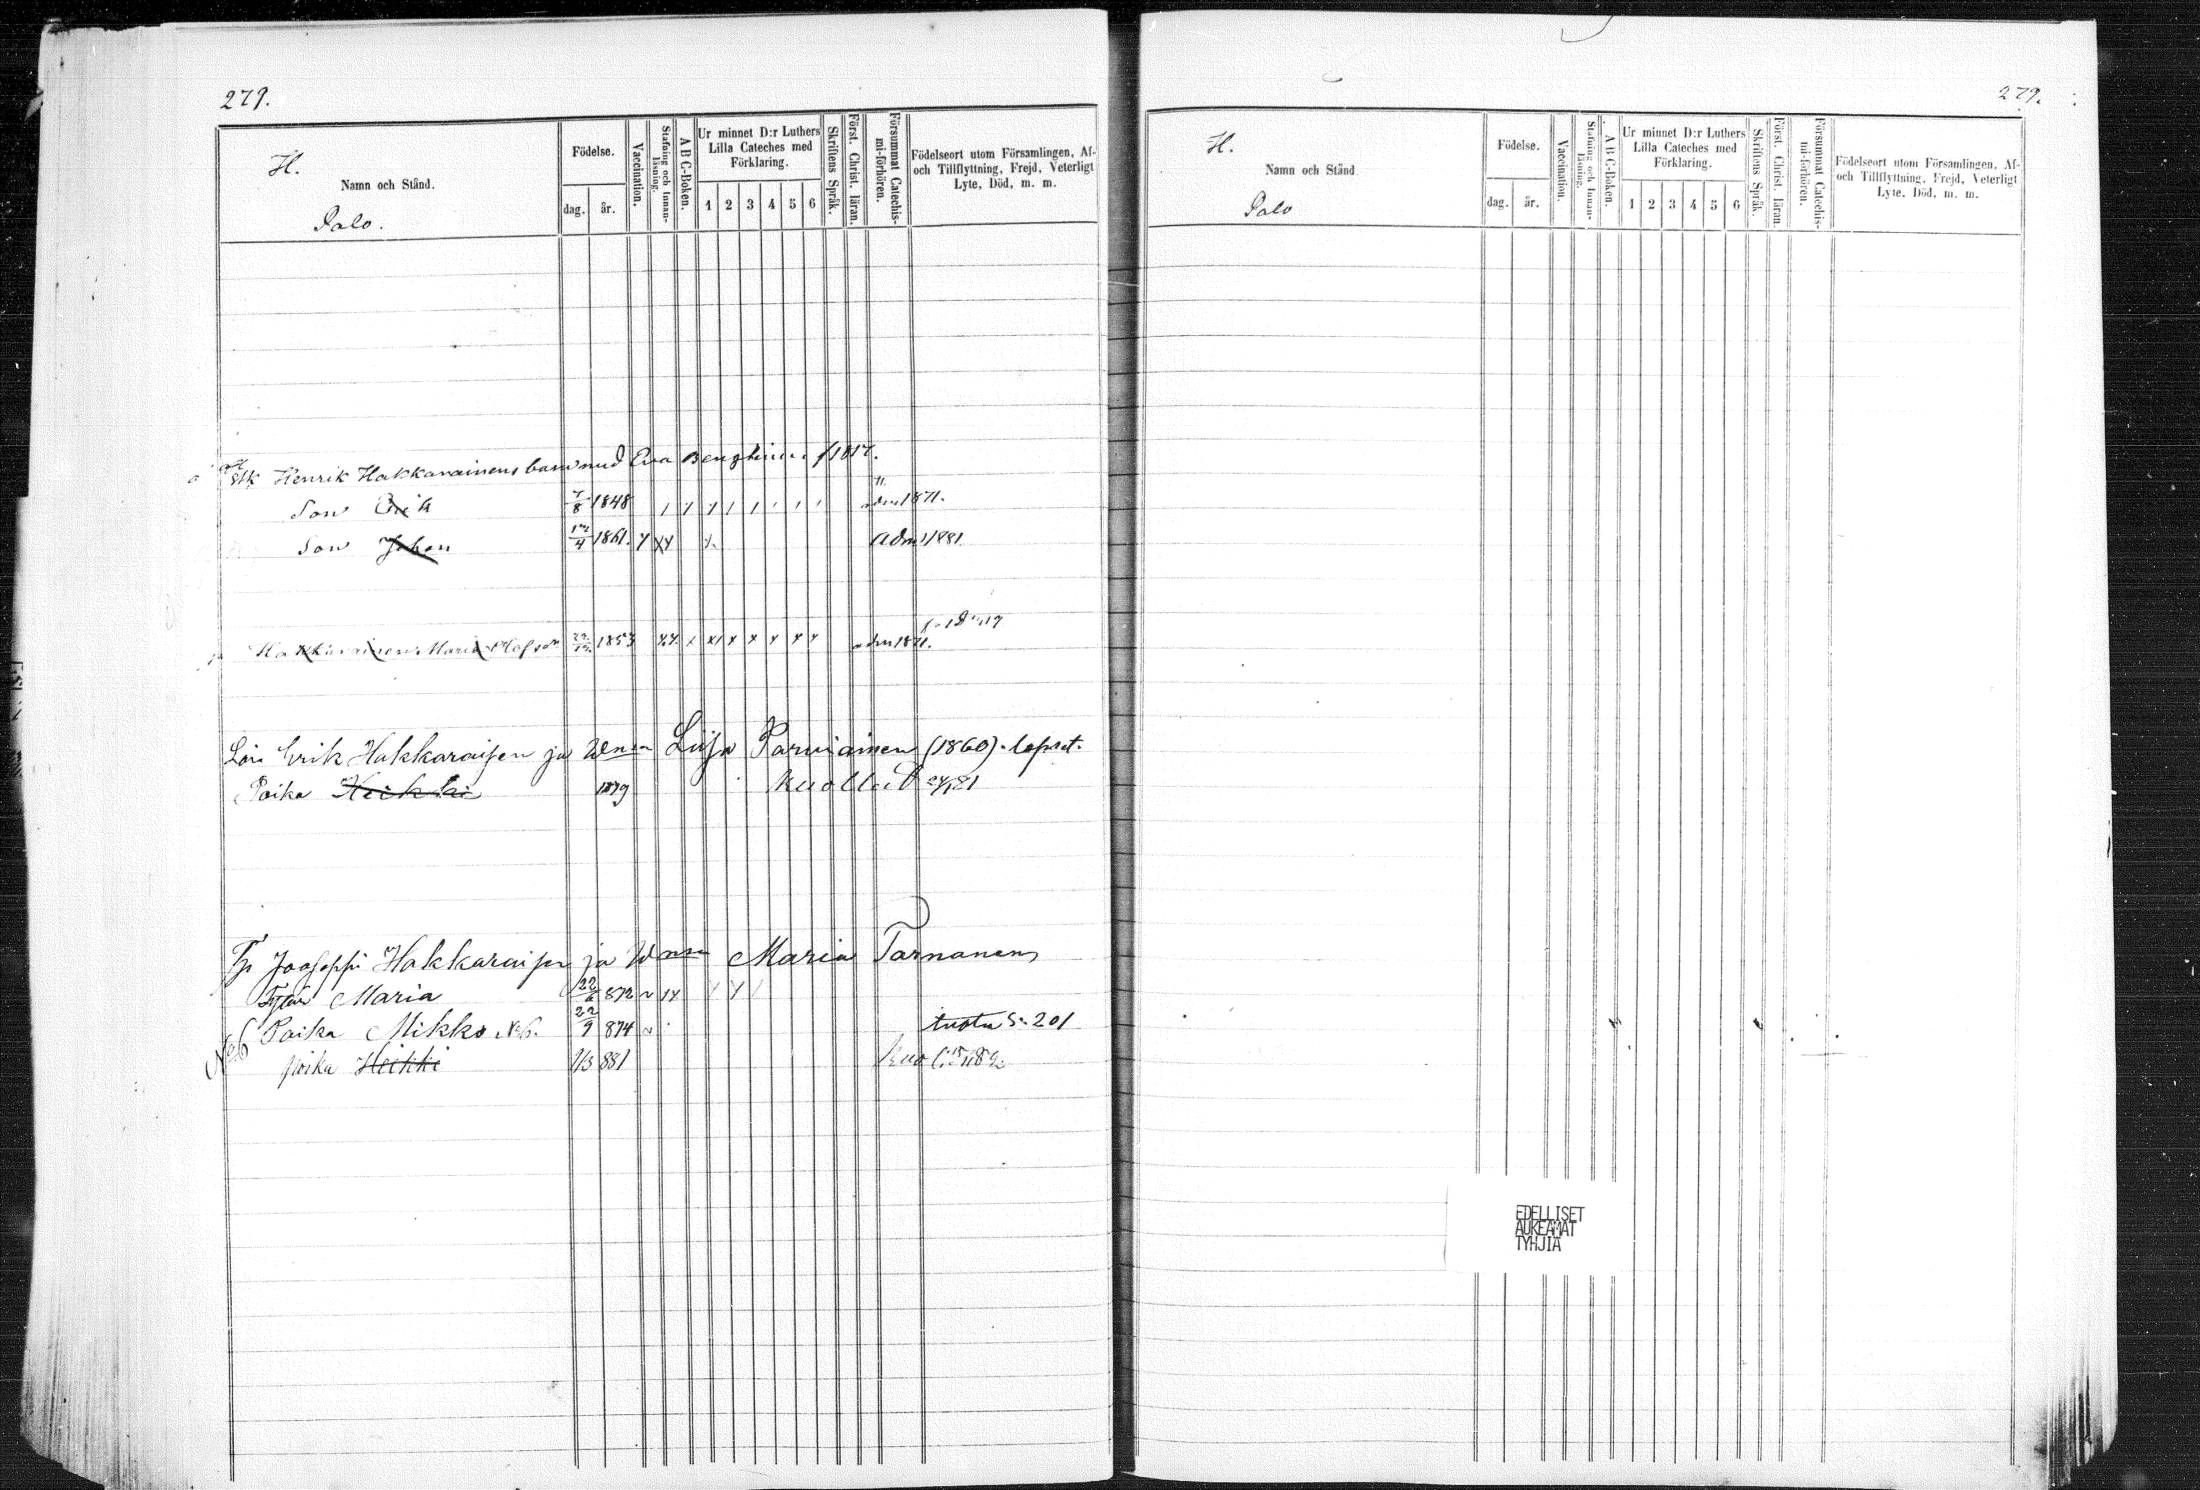 279.
H.
Namn och Stånd.
Palo.
Födelse.
dag. år.
Vaccination.
Stafning och Innan-läsning.
A B C-Boken.
Ur minnet D:r Luthers Lilla Cateches med Förklaring.
1 2 3 4 5 6
Skriftens Språk.
Först. Christ. läran.
Försummat Catechis-mi-förhören.
Födelseort utom Församlingen, Af- och Tillflyttning, Frejd, Veterligt Lyte, Död, m. m.
Henrik Hakkarainens barn med Eva
Son Erik 7/8 1848 adm 1871.
Son Johan 17/4 1861. adm 1881
Hakkarainen Maria Olofsdr 1853 adm 1871.
Erik Hakkaraisen ja Wmon Liisa Parviainen (1860). lapset.
Poika Heikki 1879 kuollut 81
Jooseppi Hakkaraisen ja Wmon Maria Tarnanen
Tytär Maria 22/6 872
Poika Mikko No 6. 22/9 874 S. 201
No 6
poika Heikki 1/3 881
279.
H.
Namn och Stånd
Palo
Födelse.
dag. år.
Vaccination.
Stafning och Innan-läsning.
A B C-Boken.
Ur minnet D:r Luthers Lilla Cateches med Förklaring.
1 2 3 4 5 6
Skriftens Språk.
Först. Christ. läran.
Försummat Catechis-mi-förhören.
Födelseort utom Församlingen, Af- och Tillflyttning, Frejd, Veterligt Lyte, Död, m. m.
EDELLISET
AUKEAMAT
TYHJIÄ